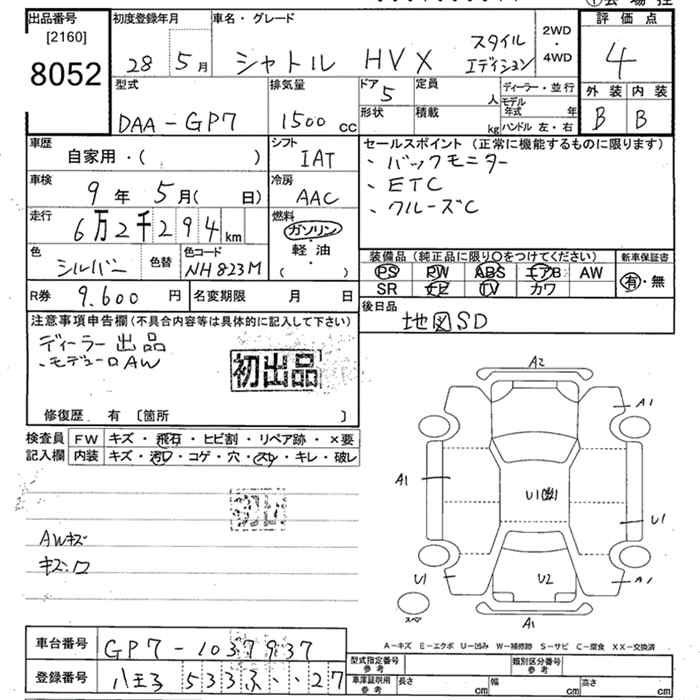 出品番号
[2160]
8052
初度登録年月
28 5月
車名・グレード
シャトル HV X スタイル
エディション
2WD
・
4WD
評価点
4
外装 内装
B B
型式
DAA-GP7
排気量
1500 cc
ドア
5
形状
定員
人
積載
kg
ディーラー・並行
モデル
年式 年
ハンドル 左・右
車歴
自家用・( )
シフト
IAT
セールスポイント(正常に機能するものに限ります)
、バックモニター
、ETC
、クルーズC
車検
9年 5月( 日)
冷房
AAC
走行
6万2千294 km
燃料
ガソリン・
軽油
( ・ )
色
シルバー
色替
色コード
NH823M
装備品(純正品に限り〇をつけてください)
PS PW ABS エアB AW
SR ナビ TV カワ
新車保証書
有・無
R券 9.600 円
名変期限 月 日
後日品
地図SD
注意事項申告欄(不具合内容等は具体的に記入して下さい)
ディーラー出品
、モデューロAW
初出品
修復歴 有 〔箇所 〕
検査員
記入欄
FW キズ・飛石・ヒビ割・リペア跡・×要
内装 キズ・汚レ・コゲ・穴・スレ・キレ・破レ
AWキズ
A2
A1
A1
U1
U1
U2
A1
A1
スペア
A-キズ E-エクボ U-凹み W-補修跡 S-サビ C-腐食 XX-交換済
車台番号 GP7-1037937
登録番号 八王子 533 ・・27
型式指定番号
参考
類別区分番号
参考
車庫証明用
参考
長さ cm
幅 cm
高さ cm